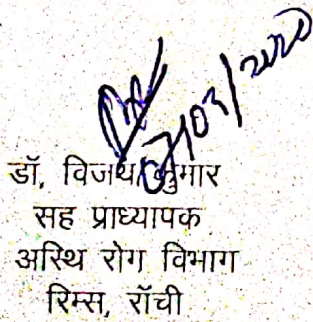 07/03/2020
डॉ. विजय कुमार
सह प्राध्यापक
अस्थि रोग विभाग
रिम्स, राँची